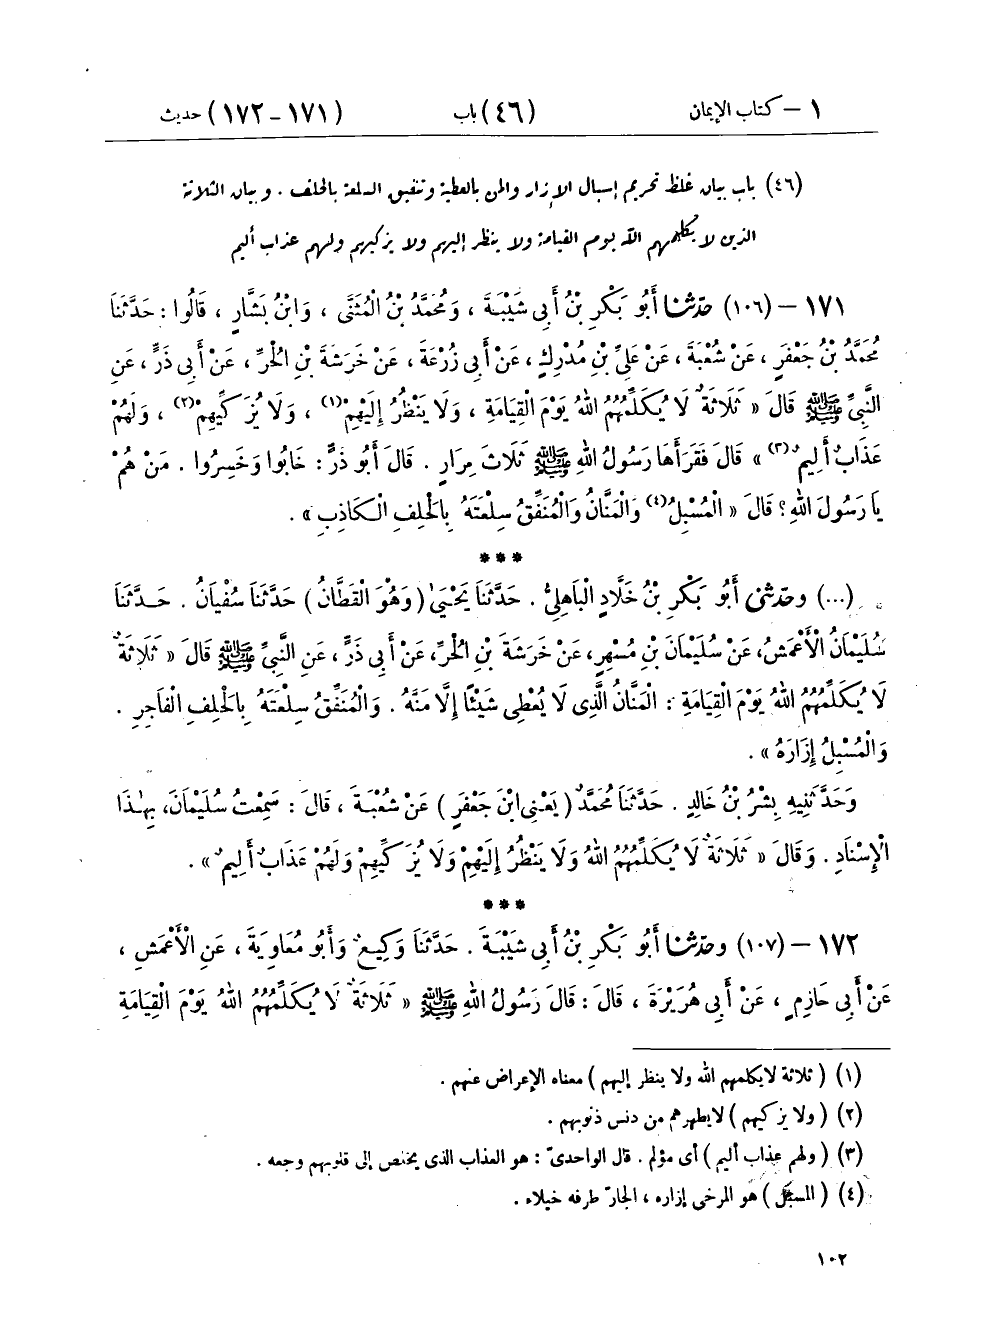 ١ – كتاب الإيمان (٤٦) باب (١٧١ – ١٧٢) حديث
(٤٦) باب بيان غلظ تحريم إسبال الإزار والمن بالعطية وتنفيق السلعة بالحلف . وبيان الثلاثة
الذين لا يكلمهم الله يوم القيامة ولا ينظر إليهم ولا يزكيهم ولهم عذاب أليم
١٧١ – (١٠٦) حدّثنا أَبُو بَكْرِ بْنُ أَبِي شَيْبَةَ ، وَمُحَمَّدُ بْنُ الْمُثَنَّى ، وَابْنُ بَشَّارٍ ، قَالُوا : حَدَّثَنَا
مُحَمَّدُ بْنُ جَعْفَرٍ ، عَنْ شُعْبَةَ ، عَنْ عَلِيِّ بْنِ مُدْرِكٍ ، عَنْ أَبِي زُرْعَةَ ، عَنْ خَرَشَةَ بْنِ الْحُرِّ ، عَنْ أَبِي ذَرٍّ ، عَنِ
النَّبِيِّ ﷺ قَالَ « ثَلَاثَةٌ لَا يُكَلِّمُهُمُ اللهُ يَوْمَ الْقِيَامَةِ ، وَلَا يَنْظُرُ إِلَيْهِمْ(١) ، وَلَا يُزَكِّيهِمْ(٢) ، وَلَهُمْ
عَذَابٌ أَلِيمٌ(٣) » قَالَ فَقَرَأَهَا رَسُولُ اللهِ ﷺ ثَلَاثَ مِرَارٍ . قَالَ أَبُو ذَرٍّ : خَابُوا وَخَسِرُوا . مَنْ هُمْ
يَا رَسُولَ اللهِ ؟ قَالَ « الْمُسْبِلُ(٤) وَالْمَنَّانُ وَالْمُنَفِّقُ سِلْعَتَهُ بِالْحَلِفِ الْكَاذِبِ » .
***
(...) وحدّثنى أَبُو بَكْرِ بْنُ خَلَّادٍ الْبَاهِلِيُّ . حَدَّثَنَا يَحْيَىٰ ( وَهُوَ الْقَطَّانُ ) حَدَّثَنَا سُفْيَانُ . حَدَّثَنَا
سُلَيْمَانُ الْأَعْمَشُ ، عَنْ سُلَيْمَانَ بْنِ مُسْهِرٍ ، عَنْ خَرَشَةَ بْنِ الْحُرِّ ، عَنْ أَبِي ذَرٍّ ، عَنِ النَّبِيِّ ﷺ قَالَ « ثَلَاثَةٌ
لَا يُكَلِّمُهُمُ اللهُ يَوْمَ الْقِيَامَةِ : الْمَنَّانُ الَّذِي لَا يُعْطِي شَيْئًا إِلَّا مَنَّهُ . وَالْمُنَفِّقُ سِلْعَتَهُ بِالْحَلِفِ الْفَاجِرِ .
وَالْمُسْبِلُ إِزَارَهُ » .
وَحَدَّثَنِيهِ بِشْرُ بْنُ خَالِدٍ . حَدَّثَنَا مُحَمَّدٌ ( يَعْنِي ابْنَ جَعْفَرٍ ) عَنْ شُعْبَةَ ، قَالَ : سَمِعْتُ سُلَيْمَانَ ، بِهٰذَا
الْإِسْنَادِ . وَقَالَ « ثَلَاثَةٌ لَا يُكَلِّمُهُمُ اللهُ وَلَا يَنْظُرُ إِلَيْهِمْ وَلَا يُزَكِّيهِمْ وَلَهُمْ عَذَابٌ أَلِيمٌ » .
***
١٧٢ – (١٠٧) وحدّثنا أَبُو بَكْرِ بْنُ أَبِي شَيْبَةَ . حَدَّثَنَا وَكِيعٌ وَأَبُو مُعَاوِيَةَ ، عَنِ الْأَعْمَشِ ،
عَنْ أَبِي حَازِمٍ ، عَنْ أَبِي هُرَيْرَةَ ، قَالَ : قَالَ رَسُولُ اللهِ ﷺ « ثَلَاثَةٌ لَا يُكَلِّمُهُمُ اللهُ يَوْمَ الْقِيَامَةِ
(١) ( ثلاثة لايكلمهم الله ولا ينظر إليهم ) معناه الإعراض عنهم .
(٢) ( ولا يزكيهم ) لايطهرهم من دنس ذنوبهم .
(٣) ( ولهم عذاب أليم ) أى مؤلم . قال الواحدىّ : هو العذاب الذى يخلص إلى قلوبهم وجعه .
(٤) ( المسبل ) هو المرخى إزاره ، الجارّ طرفه خيلاء .
١٠٢